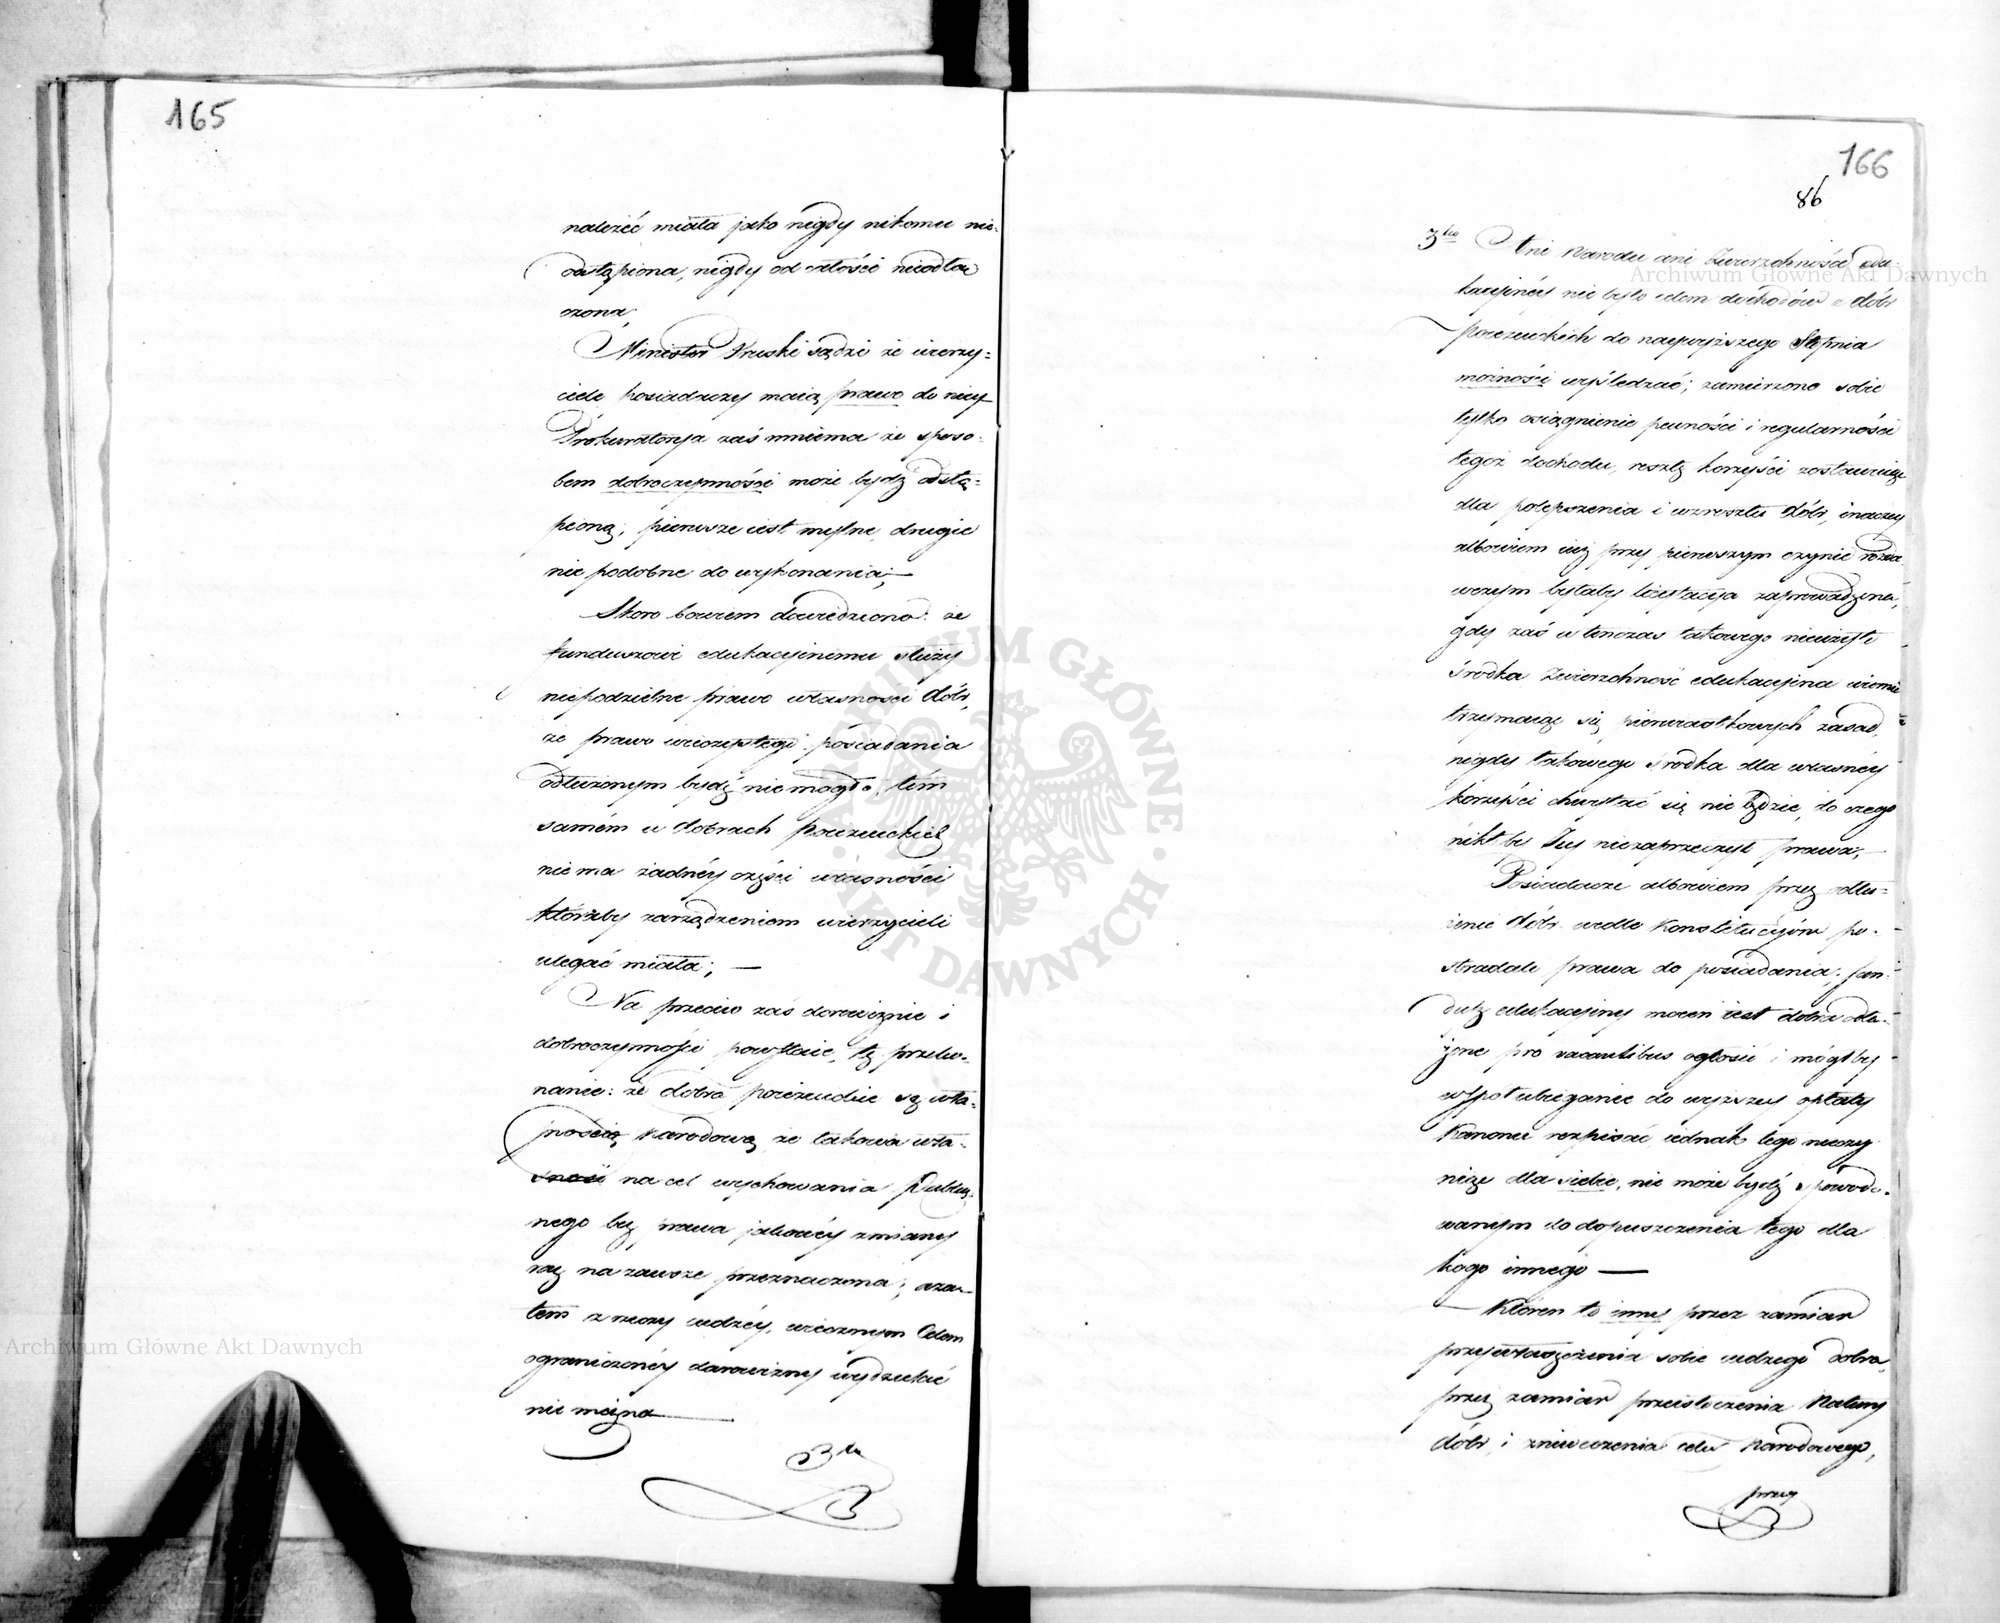 165
należéć miała jako nigdy nikomu nie-
odstąpiona, nigdy od całości nieodłą-
czona,
Minister Pruski sądzi że wierzy-
ciele posiadaczy maią prawo do niey
Prokuratorya zaś mniema że sposo-
bem dobroczynności może bydź odstą-
pioną; pierwsze iest mylne, drugie
nie podobne do wykonania; —
Skoro bowiem dowiedziono: że
funduszowi edukacyinemu służy
niepodzielne prawo własności dóbr,
że prawo wieczystego posiadania
odłużonym bydź nie mogło, tém
samém w dobrach poiezuickich
nie ma żadnéy części własności
któraby zarządzeniom wierzycieli
ulegać miała; —
Na przeciw zaś darowiznie i
dobroczynności powstaie, to przeko-
nanie: że dobra poiezuickie są wła-
snością Narodową, że takowa wła-
sność na cel wychowania Publicz-
nego bez prawa jakowéy zmiany
raz na zawsze przeznaczona; a za-
tem z rzeczy cudzéy, wiecznym Celem
ograniczonéy darowizny wydzielać
nie można —
3tio
166
86
3tio Ani Narodu ani Zwierzchności edu-
kacyinéy nie było celem dochodów z dóbr
poiezuickich do naywyższego Stopnia
możności wyśledzać; zamierzono sobie
tylko osiągnienie pewności i regularności
tegoż dochodu, resztę korzyści zostawuiąc
dla polepszenia i wzrostu dóbr, inaczey
albowiem iuż przy pierwszym czynie rozda-
wczym byłaby licytacya zaprowadzona,
gdy zaś w tenczas takowego nieużyto
środka Zwierzchność edukacyina wiernie
trzymaiąc się pierwiastkowych zasad,
nigdy takowego środka dla własnéy
korzyści chwytać się nie będzie, do czego
nikt by Jey niezaprzeczył prawa, —
Posiadacze albowiem przez odłu-
żenie dóbr wedle Konstytucyów po-
stradali prawa do posiadania; fun-
dusz edukacyiny mocen iest dobra odłu-
żone pro vacantibus ogłosić i mógłby
współubieganie do wyższey opłaty
Kanonu rozpisać iednak tego nieczy-
niąc dla siebie, nie może bydź spowodo-
wanym do dopuszczenia tego dla
kogo innego —
— Któren to inny przez zamiar
przywłaszczenia sobie cudzego dobra,
przez zamiar przeistoczenia Natury
dóbr, i zniweczenia celu Narodowego,
przez
Archiwum Główne Akt Dawnych
Archiwum Główne Akt Dawnych
ARCHIWUM GŁÓWNE · AKT DAWNYCH ·